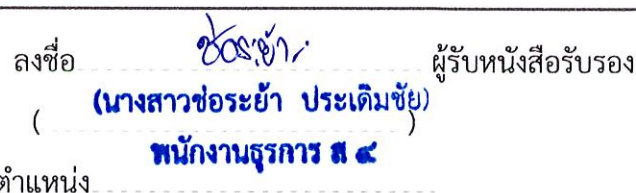 ลงชื่อ ช่อระย้า ผู้รับหนังสือรับรอง
(นางสาวช่อระย้า ประเดิมชัย)
( )
พนักงานธุรการ ส ๔
ตำแหน่ง